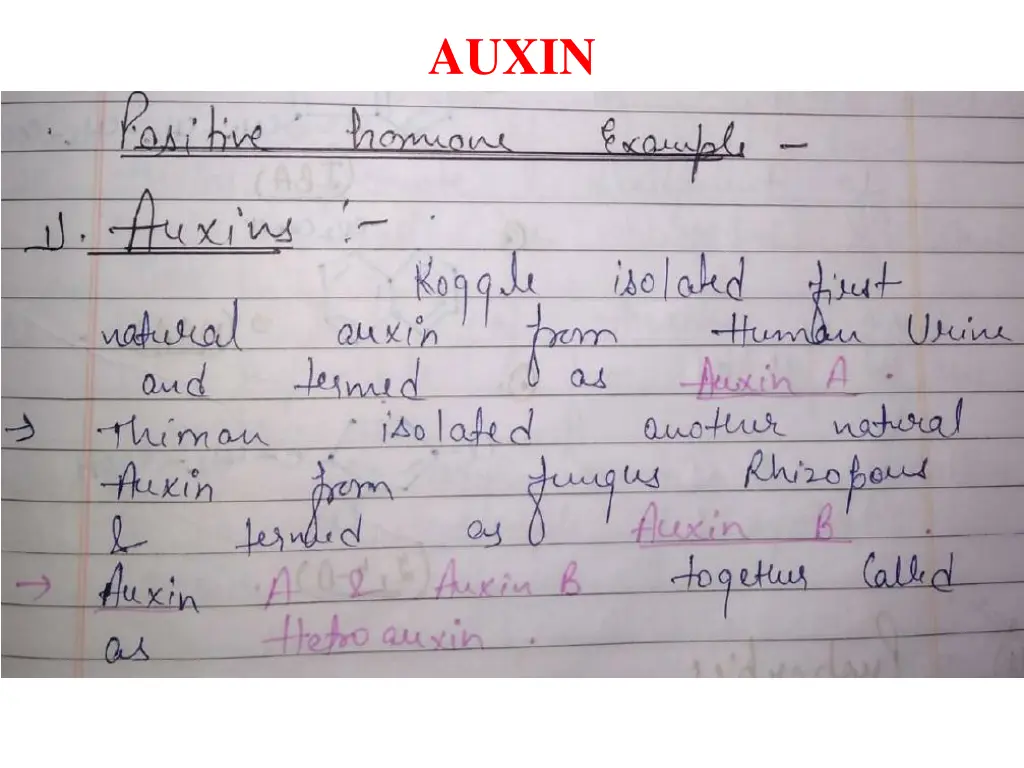 AUXIN
Positive hormone Example -
1). Auxins :-
Koggle isolated first
natural auxin from Human Urine
and termed as Auxin A.
→ Thiman isolated another natural
Auxin from fungus Rhizopous
& termed as Auxin B.
→ Auxin A & Auxin B together Called
as Hetroauxin.